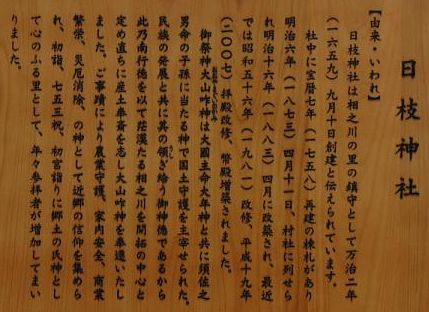 日枝神社
【由来・いわれ】
日枝神社は相之川の里の鎮守として万治二年
（一六五九）九月十日創建と伝えられています。
社中に宝暦七年（一七五八）再建の棟札があり
明治六年（一八七三）四月十一日、村社に列せら
れ明治十六年（一八八三）四月に改築され、最近
では昭和五十六年（一九八一）改修、平成十九年
（二〇〇七）拝殿改修、幣殿増築されました。
御祭神大山咋神は大國主命大年神と共に須佐之
男命の子孫に当たる神で国土守護を主宰せられた。
民族の発展と共に其の領ぎ給う御神徳であるから
此乃南行徳を以て茫漠たる相之川を開拓の中心と
定め直ちに産土奉斎を志し大山咋神を奉遷いたし
ました。ご事蹟により農業守護、家内安全、商業
繁栄、災厄消除、の神として近郷の信仰を集めら
れ、初詣、七五三祝、初宮詣りに郷土の氏神とし
て心のふる里として、年々参拝者が増加してまい
りました。